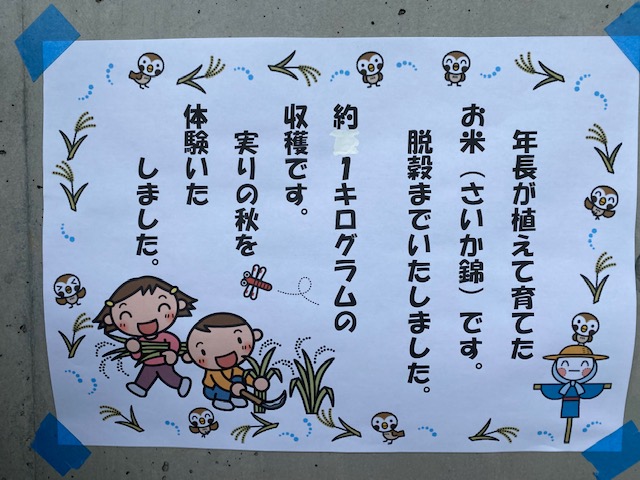 年長が植えて育てた
お米（さいか錦）です。
脱穀までいたしました。
約1キログラムの
収穫です。
実りの秋を
体験いた
しました。